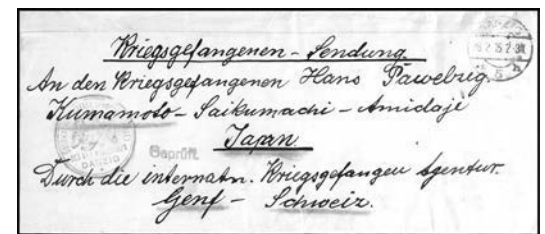 Kriegsgefangenen - Sendung
An den Kriegsgefangenen Hans
Kumamoto - Saikumachi - Amidaji
Japan
Geprüft
DANZIG
Durch die internatn. Kriegsgefangen Agentur.
Genf - Schweiz.